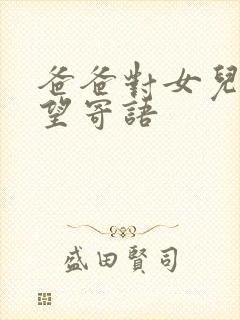 爸爸對女兒
望寄語
盛田賢司